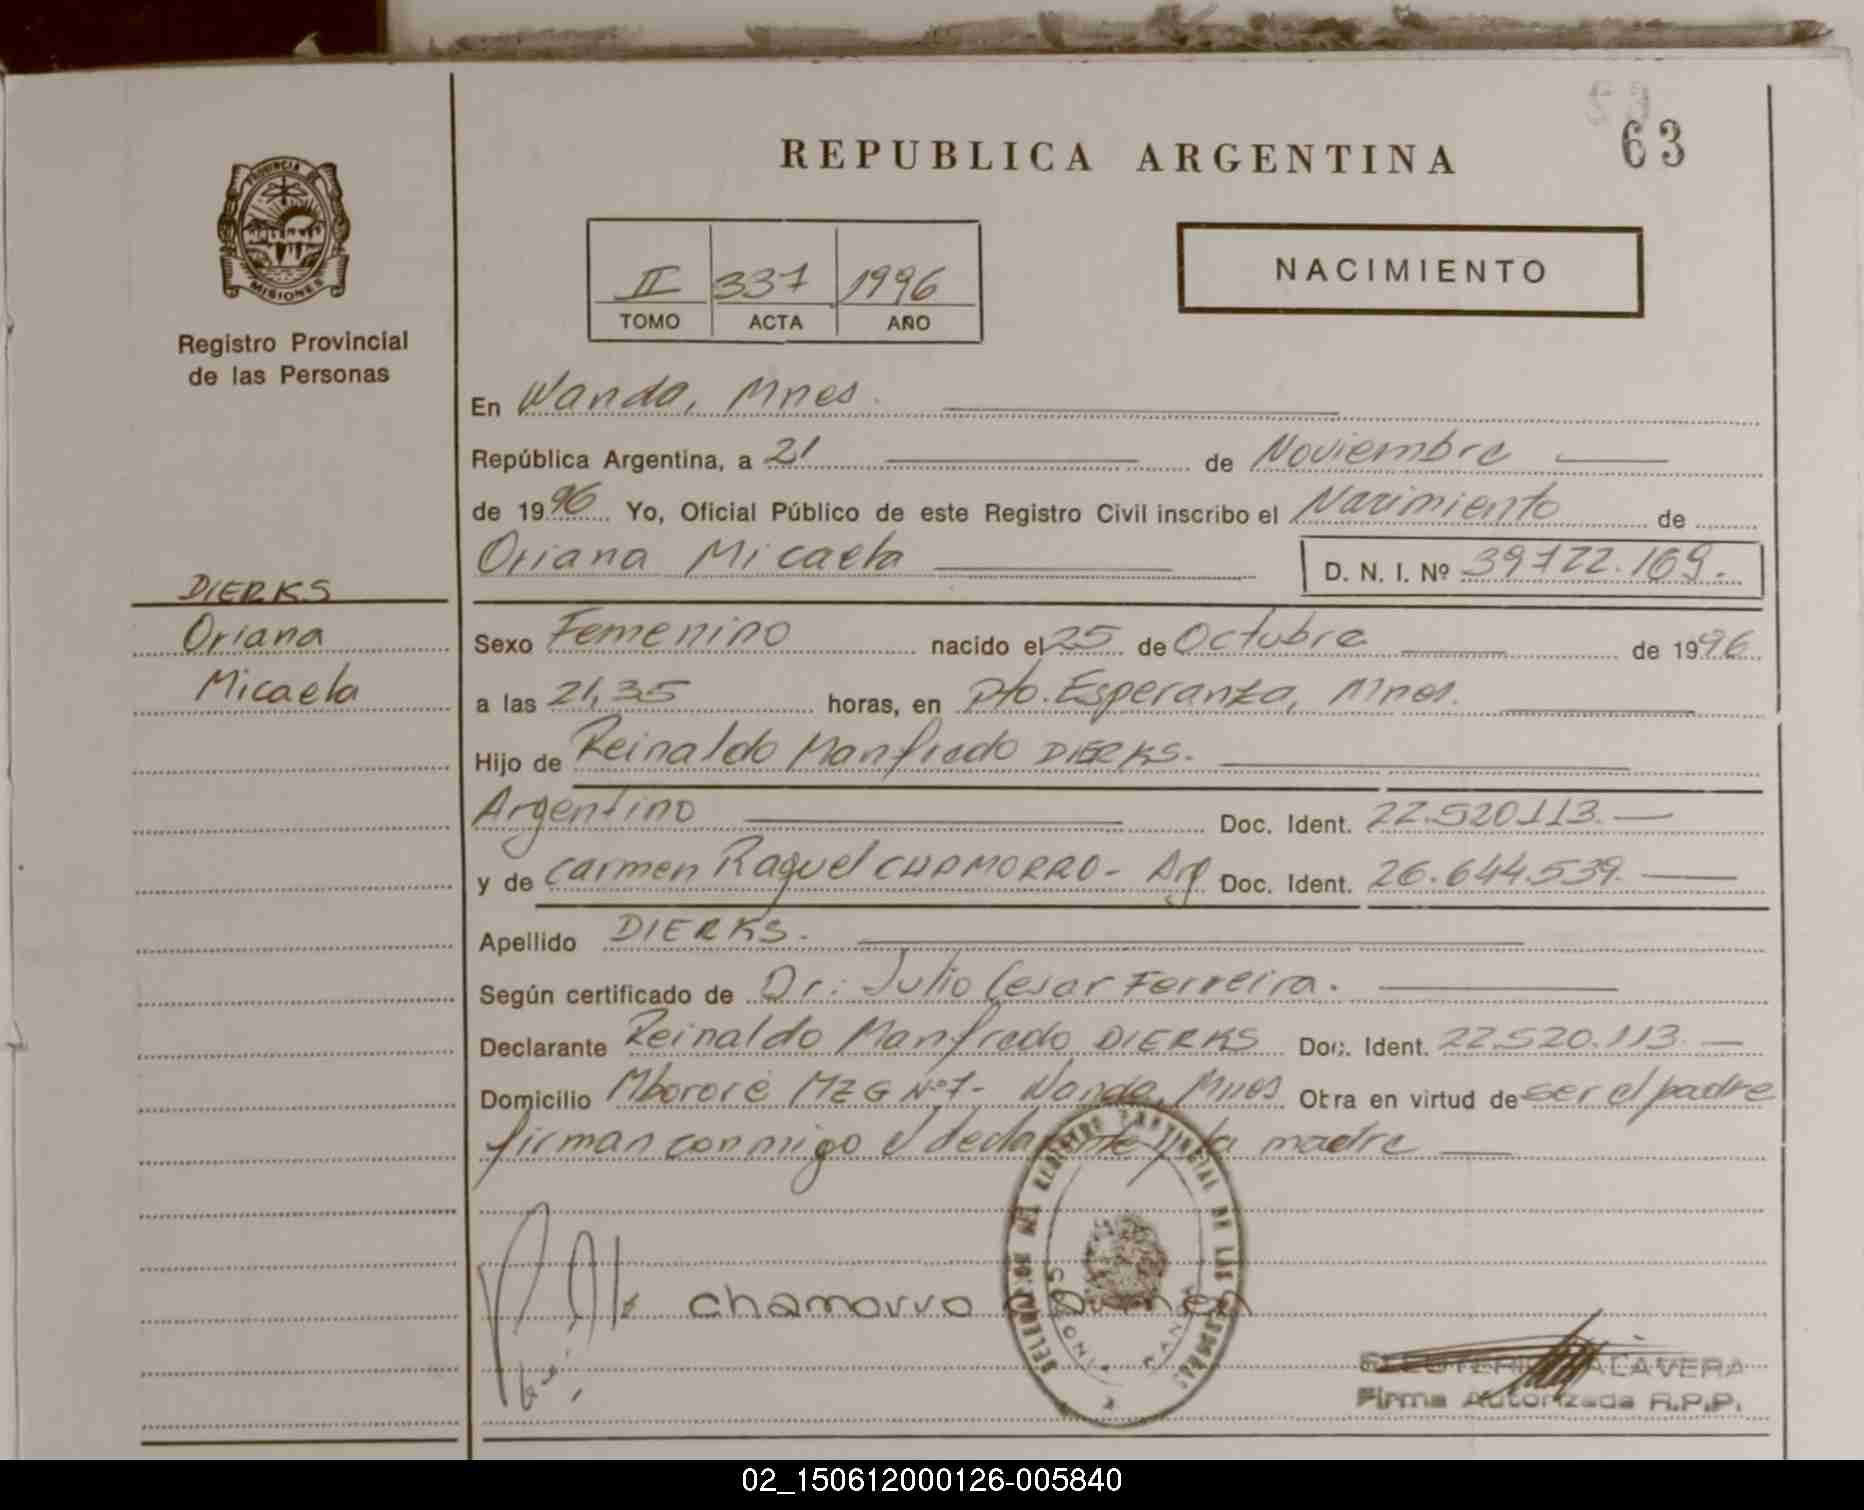 63
REPUBLICA ARGENTINA
PROVINCIA DE
MISIONES
Registro Provincial
de las Personas
II 337 1996
TOMO ACTA AÑO
NACIMIENTO
En Wanda, Mnes.
República Argentina, a 21 de Noviembre
de 1996 Yo, Oficial Público de este Registro Civil inscribo el Nacimiento de
Oriana Micaela D. N. I. Nº 39722.169.
DIERKS
Oriana
Micaela
Sexo Femenino nacido el 25 de Octubre de 1996
a las 21,35 horas, en Pto. Esperanza, Mnes.
Hijo de Reinaldo Manfredo DIERKS.
Argentino Doc. Ident. 22.520.113.
y de Carmen Raquel CHAMORRO - Arg Doc. Ident. 26.644.539.
Apellido DIERKS.
Según certificado de Dr: Julio Cesar Ferreira.
Declarante Reinaldo Manfredo DIERKS Doc. Ident. 22.520.113.
Domicilio Mbororé MZ G Nº 7- Wanda, Mnes Otra en virtud de ser el padre
firman conmigo el declarante y la madre
Chamorro Carmen
DELEGACION DEL REGISTRO PROVINCIAL DE LAS PERSONAS
MISIONES WANDA
ELEUTERIO TALAVERA
Firma Autorizada R.P.P.
02_150612000126-005840